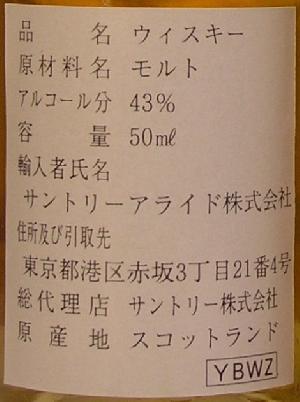 品名 ウィスキー
原材料名 モルト
アルコール分 43%
容量 50mℓ
輸入者氏名
サントリーアライド株式会社
住所及び引取先
東京都港区赤坂3丁目21番4号
総代理店 サントリー株式会社
原産地 スコットランド
YBWZ